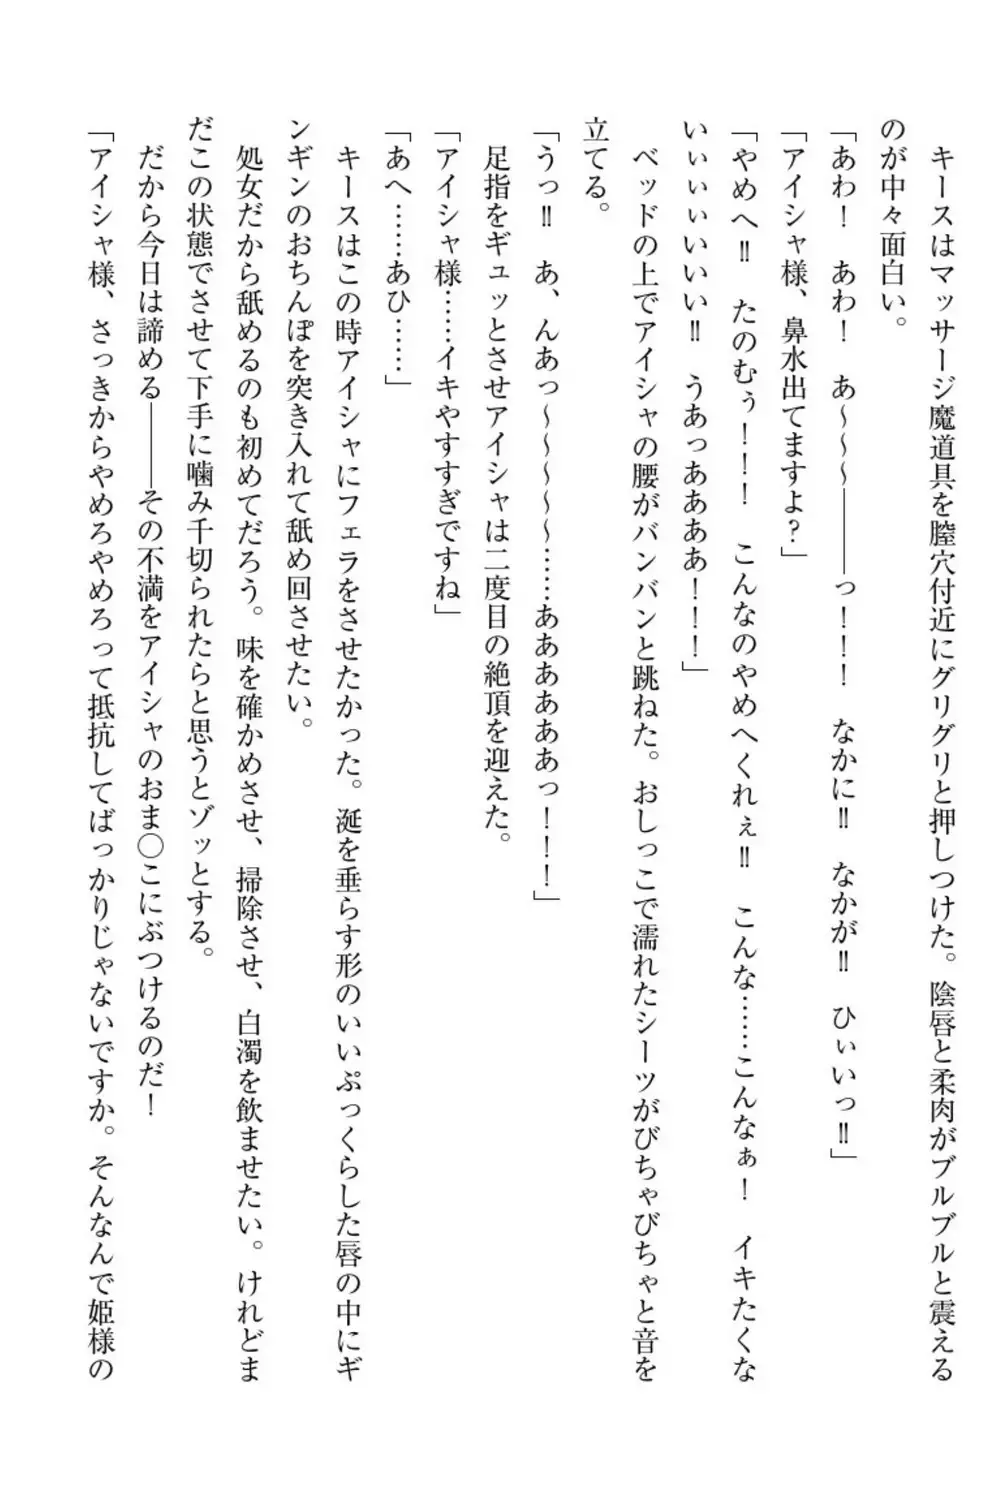 キースはマッサージ魔道具を膣穴付近にグリグリと押しつけた。陰唇と柔肉がブルブルと震える
のが中々面白い。
「あわ！　あわ！　あ～～～――――っ！！！　なかに‼　なかが‼　ひぃいっ‼」
「アイシャ様、鼻水出てますよ？」
「やめへ‼　たのむぅ！！！　こんなのやめへくれぇ‼　こんな……こんなぁ！　イキたくな
いぃぃぃいいい‼　うあっああああ！！！」
ベッドの上でアイシャの腰がバンバンと跳ねた。おしっこで濡れたシーツがびちゃびちゃと音を
立てる。
「うっ‼　あ、んあっ～～～～～……ああああああっ！！！」
足指をギュッとさせアイシャは二度目の絶頂を迎えた。
「アイシャ様……イキやすすぎですね」
「あへ……あひ……」
キースはこの時アイシャにフェラをさせたかった。涎を垂らす形のいいぷっくらした唇の中にギ
ンギンのおちんぽを突き入れて舐め回させたい。
処女だから舐めるのも初めてだろう。味を確かめさせ、掃除させ、白濁を飲ませたい。けれどま
だこの状態でさせて下手に噛み千切られたらと思うとゾッとする。
だから今日は諦める――――その不満をアイシャのおま〇こにぶつけるのだ！
「アイシャ様、さっきからやめろやめろって抵抗してばっかりじゃないですか。そんなんで姫様の